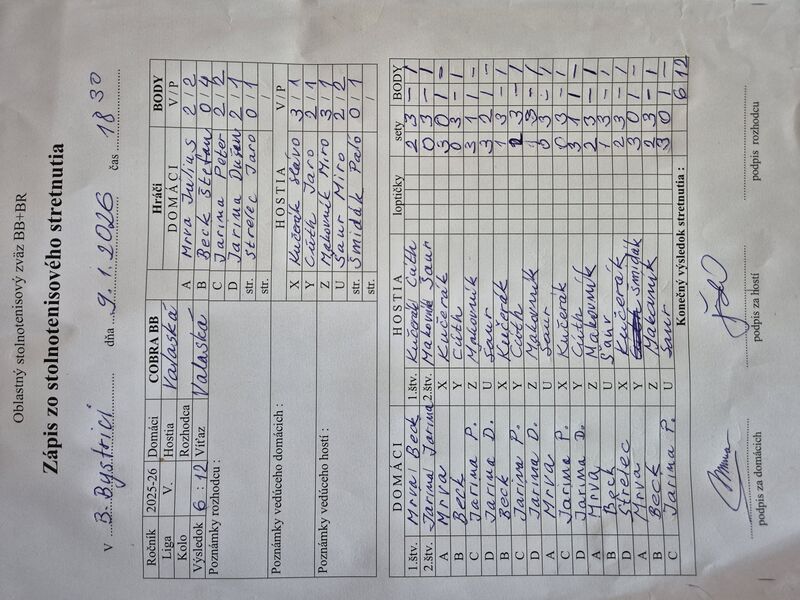 Oblastný stolnotenisový zväz BB+BR
Zápis zo stolnotenisového stretnutia
V B. Bystrici dňa 9.1.2026 čas 18 30
Ročník 2025-26 Domáci COBRA BB
Liga V. Hostia Valaská
Kolo Rozhodca
Výsledok 6 : 12 Víťaz Valaská
Poznámky rozhodcu :
Poznámky vedúceho domácich :
Poznámky vedúceho hostí :
Hráči BODY
DOMÁCI V/P
A Mrva Július 2 / 2
B Beck Štefan 0 / 4
C Jarina Peter 2 / 2
D Jarina Dušan 2 / 1
str. Strelec Jaro 0 / 1
str. /
HOSTIA V/P
X Kučerák Slávo 3 / 1
Y Cúth Jaro 2 / 1
Z Makovník Miro 3 / 1
U Šaur Miro 2 / 2
str. Šmidák Palo 0 / 1
str. /
DOMÁCI HOSTIA loptičky sety BODY
1.štv. Mrva Beck 1.štv. Kučerák Cúth 2 3 – 1
2.štv. Jarina Jarina 2.štv. Makovník Šaur 0 3 – 1
A Mrva X Kučerák 3 0 1 –
B Beck Y Cúth 0 3 – 1
C Jarina P. Z Makovník 3 1 1 –
D Jarina D. U Šaur 3 2 1 –
B Beck X Kučerák 1 3 – 1
C Jarina P. Y Cúth 2 3 – 1
D Jarina D. Z Makovník 1 3 – 1
A Mrva U Šaur 0 3 – 1
C Jarina P. X Kučerák 0 3 – 1
D Jarina D. Y Cúth 3 1 1 –
A Mrva Z Makovník 2 3 – 1
B Beck U Šaur 1 3 – 1
D Strelec X Kučerák 2 3 – 1
A Mrva Y Šmidák 3 0 1 –
B Beck Z Makovník 2 3 – 1
C Jarina P. U Šaur 3 0 1 –
Konečný výsledok stretnutia : 6 12
podpis za domácich podpis za hostí podpis rozhodcu